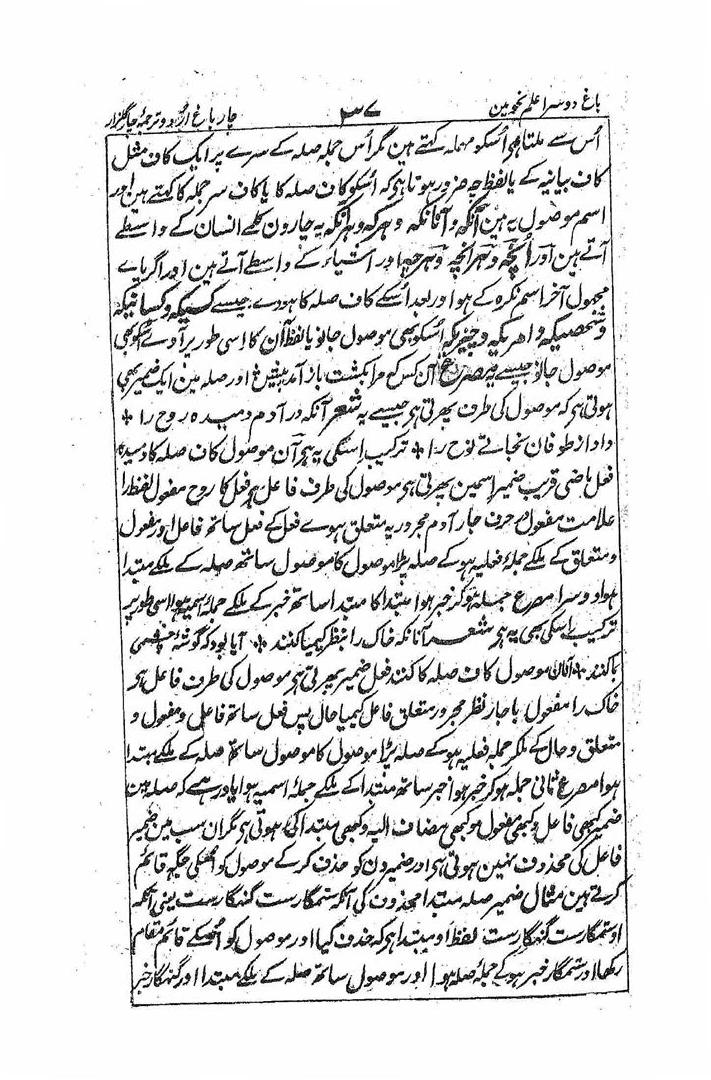 باغ دوسرا علم نحو مین ۳۷ چار باغ اردو ترجمہ چار گلزار
اُس سے ملتا ہی اُسکو مہملہ کہتے ہین مگر اُس جملہ صلہ کے سرے پر ایک کاف مثل
کاف بیانیہ کے یا لفظ چہ ضرور ہوتا ہی کہ اُسکو کاف صلہ کا یا کاف سر جملہ کا کہتے ہین اور
اسم موصول یہ ہین آنکہ و آنانکہ و ہرکہ و ہرآنکہ یہ چارون کلمے انسان کے واسطے
آتے ہین اور آنچہ و ہرآنچہ و ہرچہ اور اشیاء کے واسطے آتے ہین اور اگر یاے
مجہول آخر اسم نکرہ کے ہو اور بعد اُسکے کاف صلہ کا ہووے جیسے کسیکہ و کسانیکہ
و شخصیکہ و امریکہ و چیزیکہ اُسکو بھی موصول جانو یا لفظ آن کا اسی طور پر آوے اُسکو بھی
موصول جانو جیسے مصرع آن کس کہ مرا بکشت باز آمد پیش اور صلہ مین ایک ضمیر بھی
ہوتی ہی کہ موصول کی طرف پھرتی ہی جیسے یہ شعر آنکہ در آدم دمیدہ روح را *
داد از طوفان نجات نوح را * ترکیب اسکی یہ ہی آن موصول کاف صلہ کا دمیدہ
فعل ماضی قریب ضمیر اسمین پھرتی ہی موصول کی طرف فاعل ہی فعل کا روح مفعول لفظ را
علامت مفعول در حرف جار آدم مجرور یہ متعلق ہوے فعل کے فعل ساتھ فاعل اور مفعول
و متعلق کے ملکے جملہ فعلیہ ہوکے صلہ پڑا موصول کا موصول ساتھ صلہ کے ملکے مبتدا
ہوا دوسرا مصرع جملہ ہوکر خبر ہوا مبتدا کا مبتدا ساتھ خبر کے ملکے جملہ اسمیہ ہوا اسی طور پر
ترکیب اسکی بھی یہ ہی شعر آنانکہ خاک را بنظر کیمیا کنند * آیا بود کہ گوشۂ چشمی
بما کنند * آنان موصول کاف صلہ کا کنند فعل ضمیر پھرتی ہی موصول کی طرف فاعل ہی
خاک را مفعول با جار نظر مجرور متعلق فاعل کیمیا حال پس فعل ساتھ فاعل و مفعول و
متعلق و حال کے ملکر جملہ فعلیہ ہوکے صلہ پڑا موصول کا موصول ساتھ صلہ کے ملکے مبتدا
ہوا مصرع ثانی جملہ ہوکر خبر ہوا خبر ساتھ مبتدا کے ملکے جملہ اسمیہ ہوا یاد رہے کہ صلہ مین
ضمیر کبھی فاعل و کبھی مفعول و کبھی مضاف الیہ و کبھی مبتدا کی ہوتی ہی مگر ان سب مین ضمیر
فاعل کی محذوف نہین ہوتی ہی اور ضمیرون کو حذف کرکے موصول کو اُسکی جگہ قائم
کرتے ہین مثال ضمیر صلہ مبتدا محذوف کی آنکہ ستمگارست گنہگارست یعنی آنکہ
او ستمگارست گنہگارست لفظ او مبتدا ہی کہ حذف کیا اور موصول کو اُسکے قائم مقام
رکھا اور ستمگار خبر ہوکے جملہ صلہ ہوا اور موصول ساتھ صلہ کے ملکے مبتدا اور گنہگار خبر